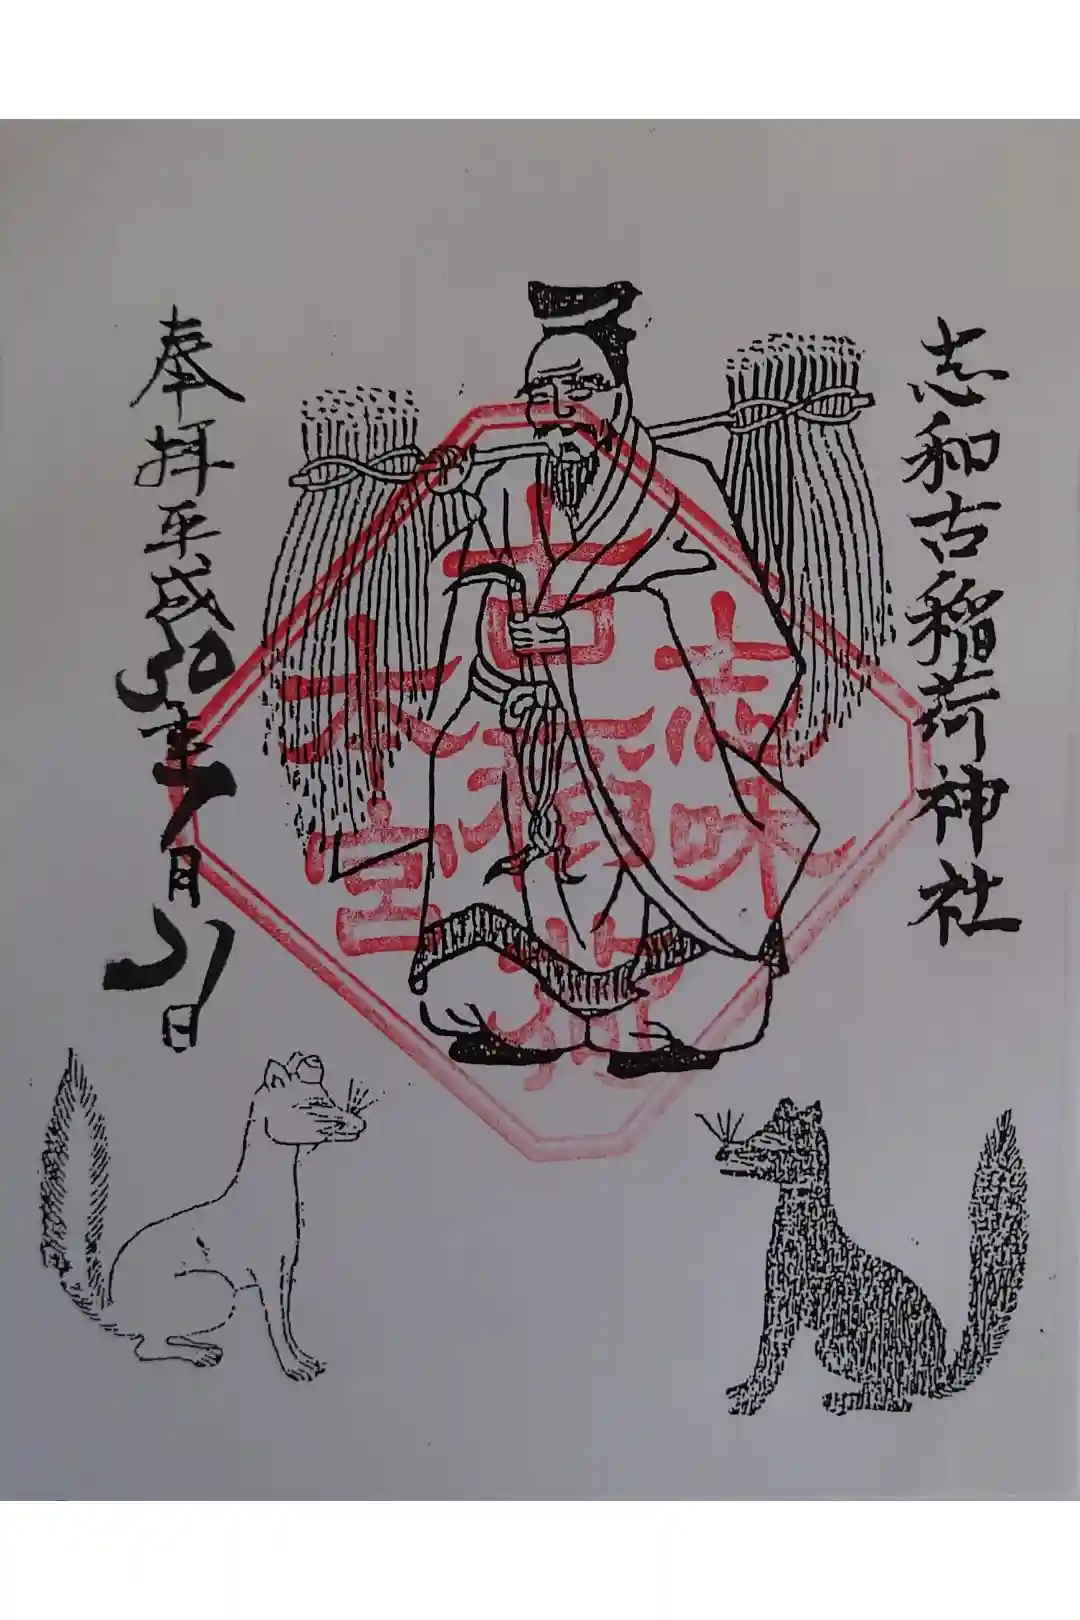 志和古稲荷神社
志味
古稲
大宮
奉拝平成30年7月21日